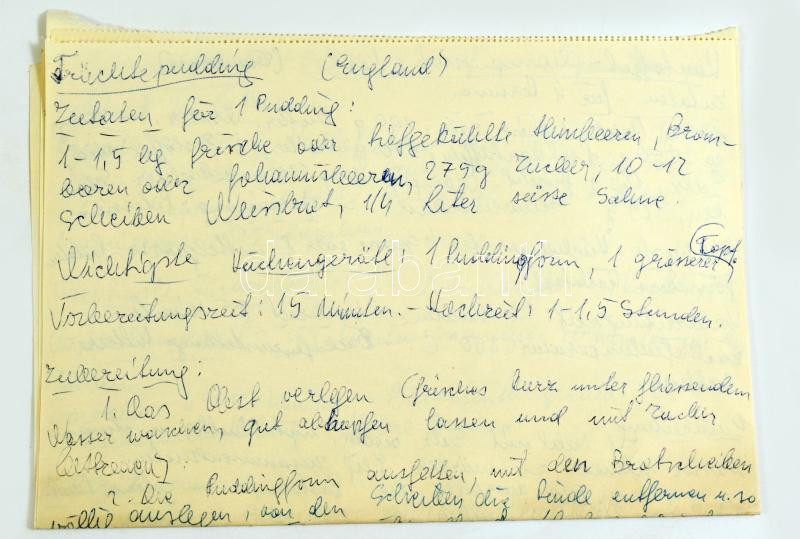 Früchtepudding (England)
Zutaten für 1 Pudding:
1-1,5 kg frische oder tiefgekühlte Himbeeren, Brom-
beeren oder Johannisbeeren, 275g Zucker, 10-12
Scheiben Weissbrot, 1/4 Liter süsse Sahne.
Wichtigste Küchengeräte: 1 Puddingform, 1 grösserer Topf.
Vorbereitungszeit: 15 Minuten. - Kochzeit: 1-1,5 Stunden.
Zubereitung:
1. Das Obst verlesen (frisches kurz unter fliessendem
Wasser waschen, gut abtropfen lassen und mit Zucker
bestreuen).
2. Die Puddingform ausfetten, mit den Brotscheiben
völlig auslegen, von den Scheiben die Rinde entfernen u. so
darabanth